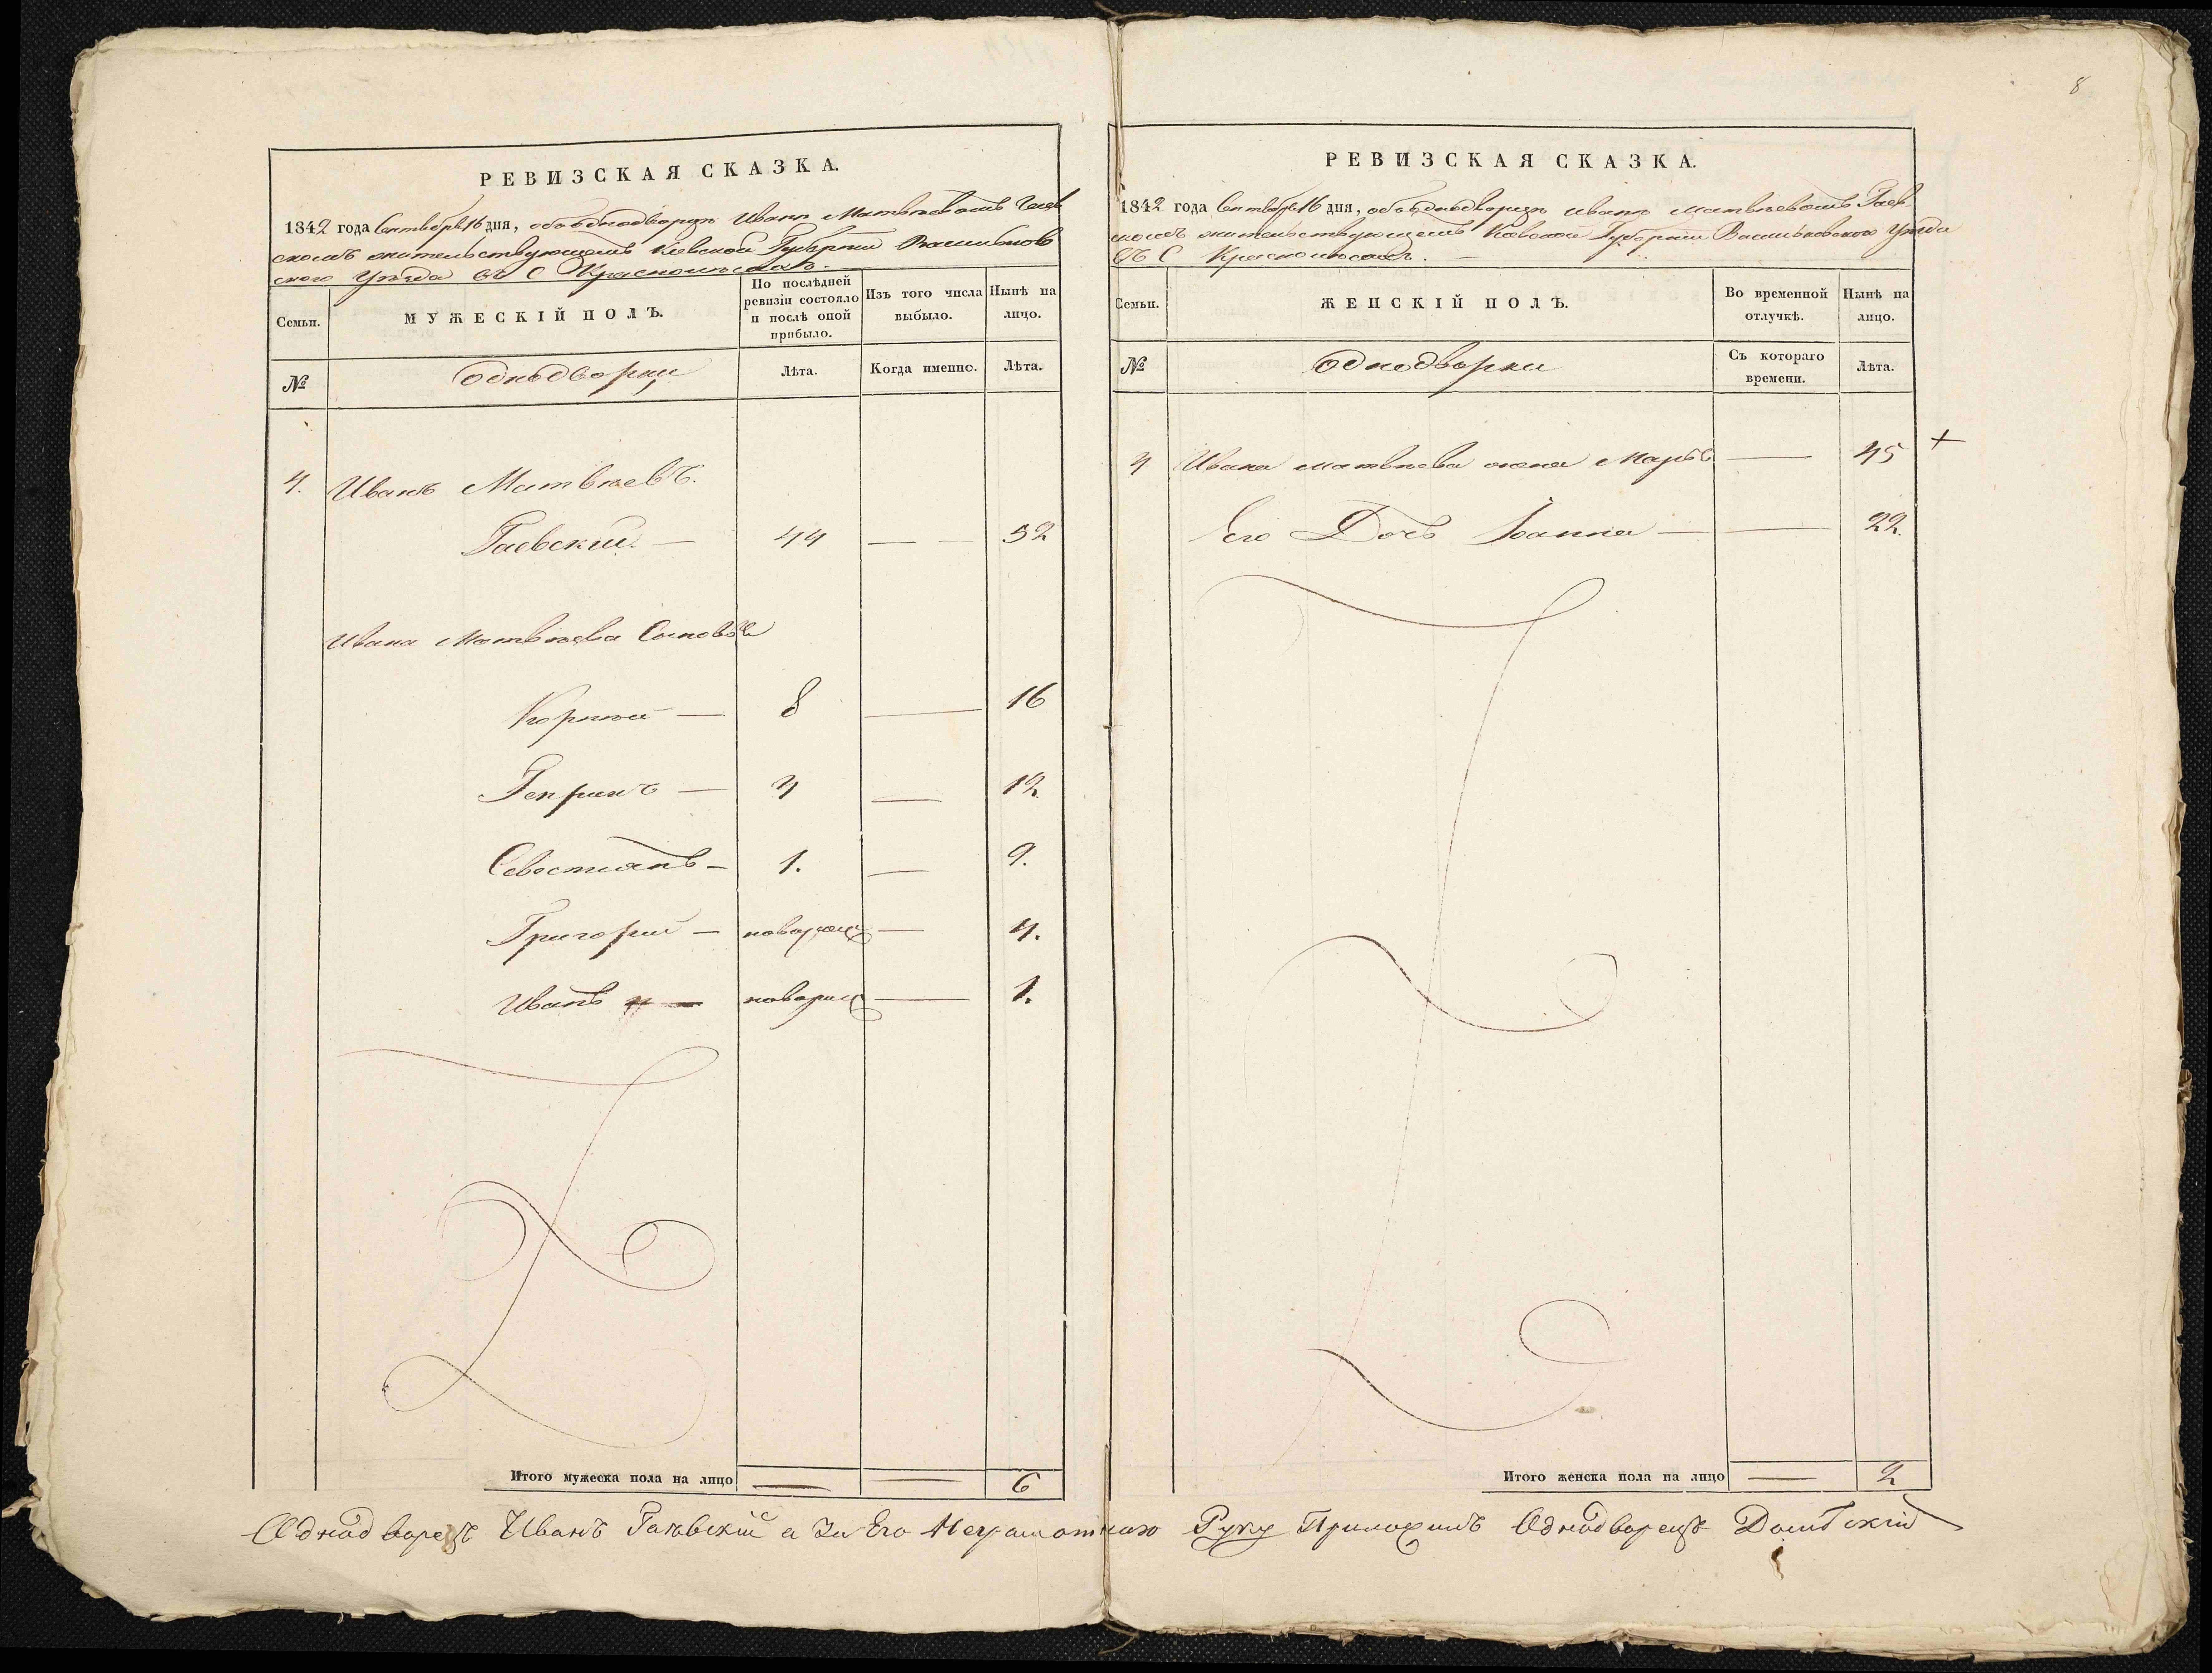 РЕВИЗСКАЯ СКАЗКА.
1842 года Сентября 16 дня, объ однодворцѣ Иванѣ Матвѣевомъ Гаев
скомъ жительствующемъ Кіевской Губерніи Васильков
ского Уѣзда въ С Красноличкахъ.
Семьи.
МУЖЕСКІЙ ПОЛЪ.
По послѣдней ревизіи состояло и послѣ оной прибыло.
Изъ того числа выбыло.
Нынѣ на лицо.
№
Однодворцы
Лѣта.
Когда именно.
Лѣта.
4. Иванъ Матвѣевъ.
Гаевский. — 44 — — 52
Ивана Матвѣева Сыновья
Корнѣй — 8 — 16
Генрихъ — 4 — 12
Севостиянъ — 1. — 9.
Григорий — поворожд — 4.
Иванъ — — 1.
Итого мужеска пола на лицо — — 6
8
РЕВИЗСКАЯ СКАЗКА.
1842 года Сентября 16 дня, объ однодворцѣ Иванѣ Матвѣевомъ Гаев
скомъ жительствующемъ Кіевской Губерніи Васильковского Уѣзда
въ С
Семьи.
ЖЕНСКІЙ ПОЛЪ.
Во временной отлучкѣ.
Нынѣ на лицо.
№
Однодворки
Съ котораго времени.
Лѣта.
4 Ивана Матвѣева жена Маръя — 45 +
Его Дочь Іоанна — — 22.
Итого женска пола на лицо — 2
Однодворецъ Иванъ Гаѣвскій а За Его Неграмотнаго Руку Приложилъ Однодворецъ